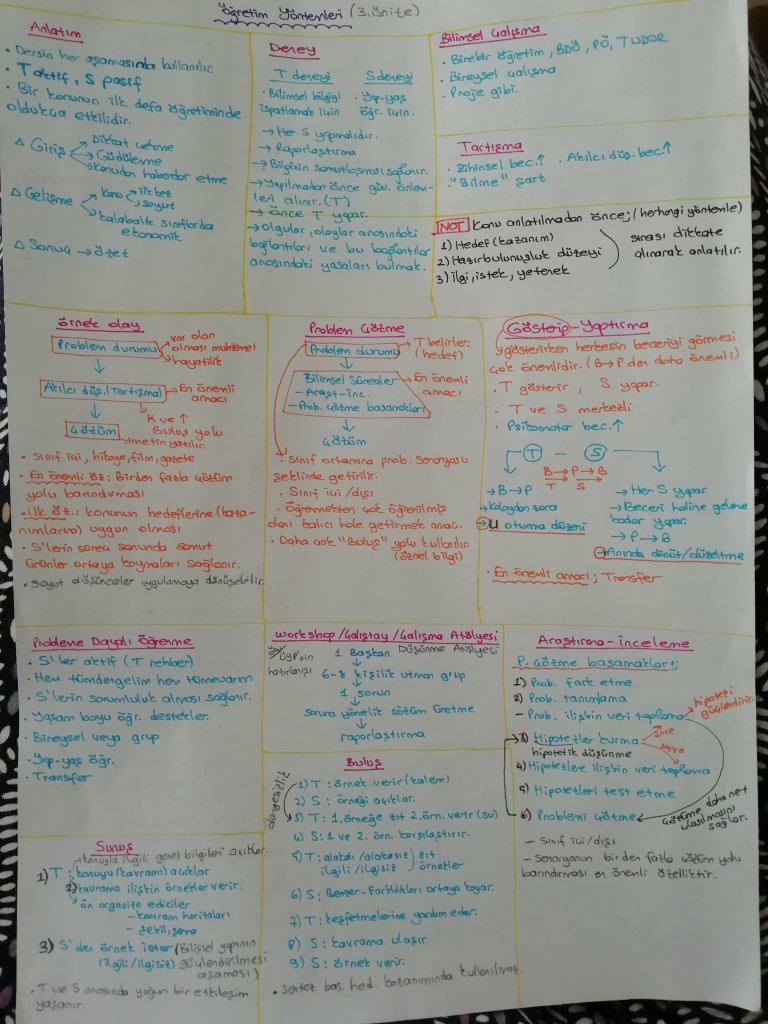 Öğretim Yöntemleri (3. ünite)
Anlatım
• Dersin her aşamasında kullanılır.
• T aktif, S pasif
• Bir konunun ilk defa öğretiminde
oldukça etkilidir.
△ Giriş → Dikkat çekme
→ Güdüleme
→ Konudan haberdar etme
△ Gelişme → Konu → ilk kez
→ soyut
→ kalabalık sınıflarda
ekonomik
△ Sonuç → özet
Deney
T deneyi
• Bilimsel bilgiyi
ispatlamak için
S deneyi
• Yap-yaş
öğr. için.
→ Her S yapmalıdır.
→ Raporlaştırma
→ Bilginin somutlaşması sağlanır.
→ Yapılmadan önce güv. önlem-
leri alınır. (T)
→ Önce T yapar.
→ olgular, olaylar arasındaki
bağlantıları ve bu bağlantılar
arasındaki yasaları bulmak.
Bilimsel Çalışma
• Birebir öğretim, BDÖ, PÖ, TUDOR
• Bireysel çalışma
• Proje gibi.
Tartışma
• Zihinsel bec.↑ • Akılcı düş. bec.↑
• "Bilme" şart
NOT Konu anlatılmadan önce; (herhangi yöntemle)
1) Hedef (kazanım)
2) Hazırbulunuşluk düzeyi
3) İlgi, istek, yetenek
sırası dikkate
alınarak anlatılır.
Örnek olay
Problem durumu → var olan
olması muhtemel
→ hayatilik
Akılcı düş. (Tartışma) → En önemli
amacı
Çözüm → K ve ↑
Buluş yolu
→ metin yazılır.
• Sınıf içi, hikaye, film, gazete
• En önemli öz: Birden fazla çözüm
yolu barındırması
• ilk öz.: konunun hedeflerine (kaza-
nımlarına) uygun olması
• S'lerin süreç sonunda somut
ürünler ortaya koymaları sağlanır.
• Soyut düşünceler uygulamaya dönüşebilir.
Problem Çözme
Problem durumu → T belirler.
(hedef)
Bilimsel Süreçler
- Araşt-inc.
- Prob. çözme basamakları
→ En önemli
amacı
Çözüm
• Sınıf ortamına prob. senaryosu
şeklinde getirilir.
• Sınıf içi/dışı
• Öğrenmekten çok öğrenilmiş
olanı kalıcı hale getirmek amaç.
• Daha çok "Buluş" yolu kullanılır.
(öznel bilgi)
Gösterip-Yaptırma
gösterirken herkesin beceriyi görmesi
çok önemlidir. (B→P den daha önemli)
• T gösterir, S yapar.
• T ve S merkezli
• Psikomotor bec.↑
T - S
B→P→B
T S
→ B→P
→ kolaydan zora
→ U oturma düzeni
→ Her S yapar
→ Beceri haline gelene
kadar yapar.
→ P→B
→ Anında dönüt/düzeltme
• En önemli amacı; Transfer
Probleme Dayalı Öğrenme
• S'ler aktif (T rehber)
• Hem tümdengelim hem tümevarım
• S'lerin sorumluluk alması sağlanır.
• Yaşam boyu öğr. destekler.
• Bireysel veya grup
• Yap-yaş öğr.
• Transfer
Workshop/Çalıştay/Çalışma Atölyesi
Düşünme Atölyesi
1 Başkan
6-8 kişilik uzman grup
1 sorun
soruna yönelik çözüm üretme
raporlaştırma
Araştırma-inceleme
P. çözme basamakları;
1) Prob. fark etme
2) Prob. tanımlama
- Prob. ilişkin veri toplama → hipotezi
güçlendirir.
3) Hipotezler kurma → önce
→ sonra
hipotetik düşünme
4) Hipotezlere ilişkin veri toplama
5) Hipotezleri test etme
6) Problemi çözme
çözüme daha net
ulaşılmasını
sağlar.
- Sınıf içi/dışı
- Senaryonun birden fazla çözüm yolu
barındırması en önemli özelliktir.
Buluş
1) T: örnek verir (kalem)
2) S: örneği açıklar.
3) T: 1. örneğe zıt 2. örn. verir (su)
4) S: 1 ve 2. örn. karşılaştırır.
5) T: alakalı/alakasız zıt
ilgili/ilgisiz örnekler
6) S: Benzer-farklılıkları ortaya koyar.
7) T: keşfetmelerine yardım eder.
8) S: kavrama ulaşır
9) S: örnek verir.
bas. hed. kazanımında kullanılmaz.
Sunuş
konuyla ilgili genel bilgileri açıklar.
1) T: konuyu (kavramı) açıklar
2) kavrama ilişkin örnekler verir.
→ ön organize ediciler
- kavram haritaları
3) S'den örnek ister (Bilişsel yapının
(ilgili/ilgisiz) güçlendirilmesi
aşaması)
• T ve S arasında yoğun bir etkileşim
yaşanır.